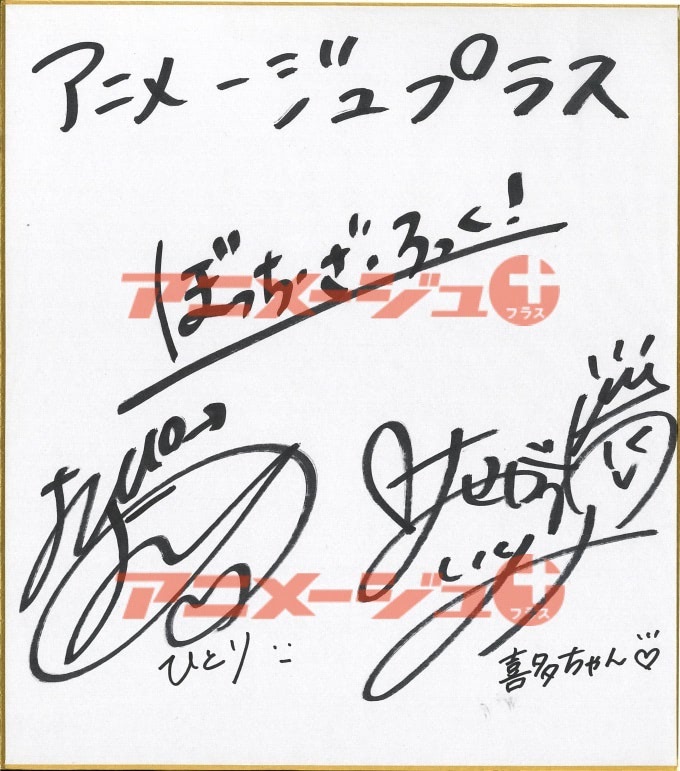 アニメージュプラス
ぼっち・ざ・ろっく!
アニメージュ
プラス
アニメージュ
プラス
ひとり
喜多ちゃん♡